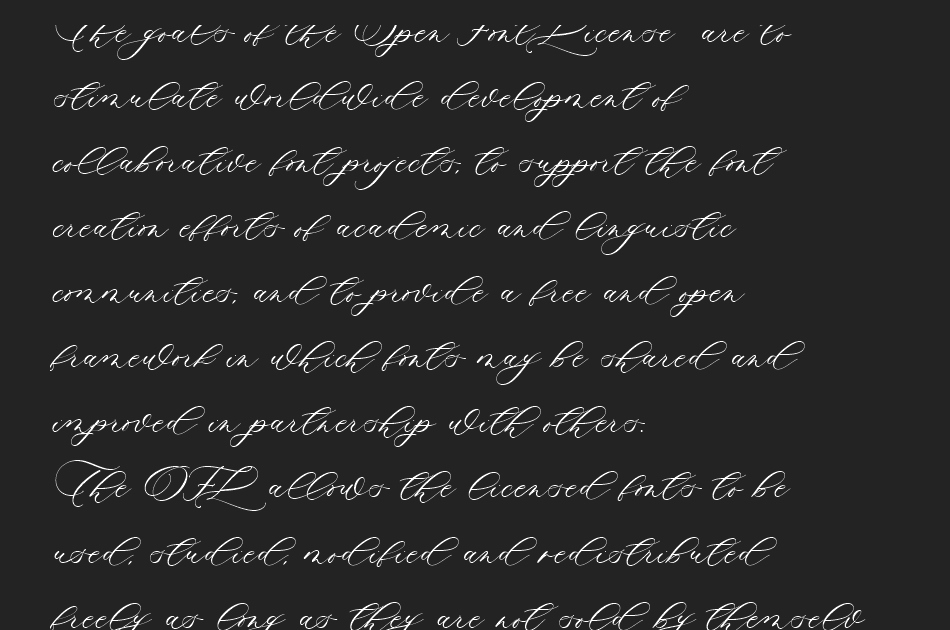 The goals of the Open Font License are to
stimulate worldwide development of
collaborative font projects, to support the font
creation efforts of academic and linguistic
communities, and to provide a free and open
framework in which fonts may be shared and
improved in partnership with others.
The OFL allows the licensed fonts to be
used, studied, modified and redistributed
freely as long as they are not sold by themselv